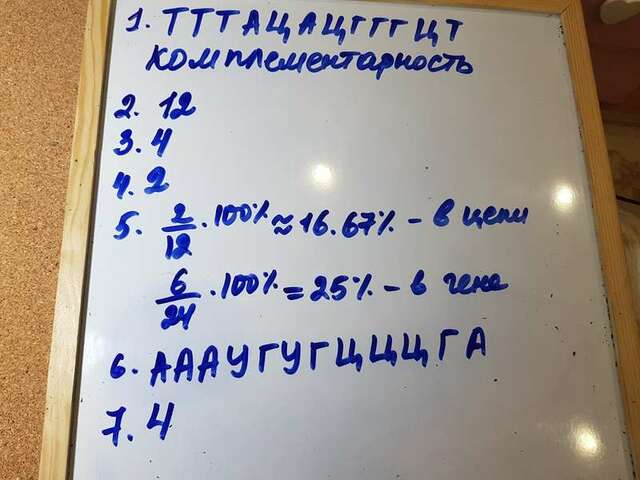 1. ТТТАЦАЦГГГЦТ
комплементарность
2. 12
3. 4
4. 2
5. 2/12 · 100% ≈ 16.67% - в цепи
6/24 · 100% = 25% - в гене
6. АААУГУГЦЦЦГА
7. 4